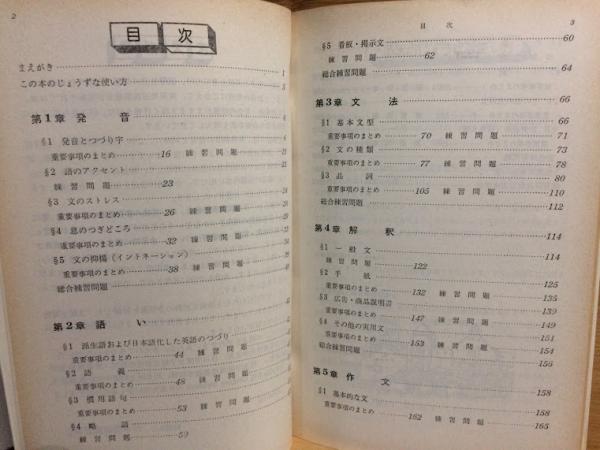 2
目次
まえがき 1
この本のじょうずな使い方 3
第1章 発音
§1 発音とつづり字
重要事項のまとめ 16 練習問題
§2 語のアクセント
練習問題 23
§3 文のストレス
重要事項のまとめ 26 練習問題
§4 息のつぎどころ
重要事項のまとめ 32 練習問題
§5 文の抑揚(イントネーション)
重要事項のまとめ 38 練習問題
総合練習問題
第2章 語い
§1 派生語および日本語化した英語のつづり
重要事項のまとめ 44 練習問題
§2 語義
重要事項のまとめ 48 練習問題
§3 慣用語句
重要事項のまとめ 53 練習問題
§4 略語
練習問題 59
目次 3
§5 看板・掲示文 60
練習問題 62
総合練習問題 64
第3章 文法 66
§1 基本文型 66
重要事項のまとめ 70 練習問題 71
§2 文の種類 73
重要事項のまとめ 77 練習問題 78
§3 品詞 80
重要事項のまとめ 105 練習問題 110
総合練習問題 112
第4章 解釈 114
§1 一般文 114
練習問題 122
§2 手紙 125
重要事項のまとめ 132 練習問題 135
§3 広告・商品説明書 139
重要事項のまとめ 147 練習問題 149
§4 その他の実用文 151
重要事項のまとめ 153 練習問題 154
総合練習問題 154
第5章 作文 158
§1 基本的な文 158
重要事項のまとめ 162 練習問題 165